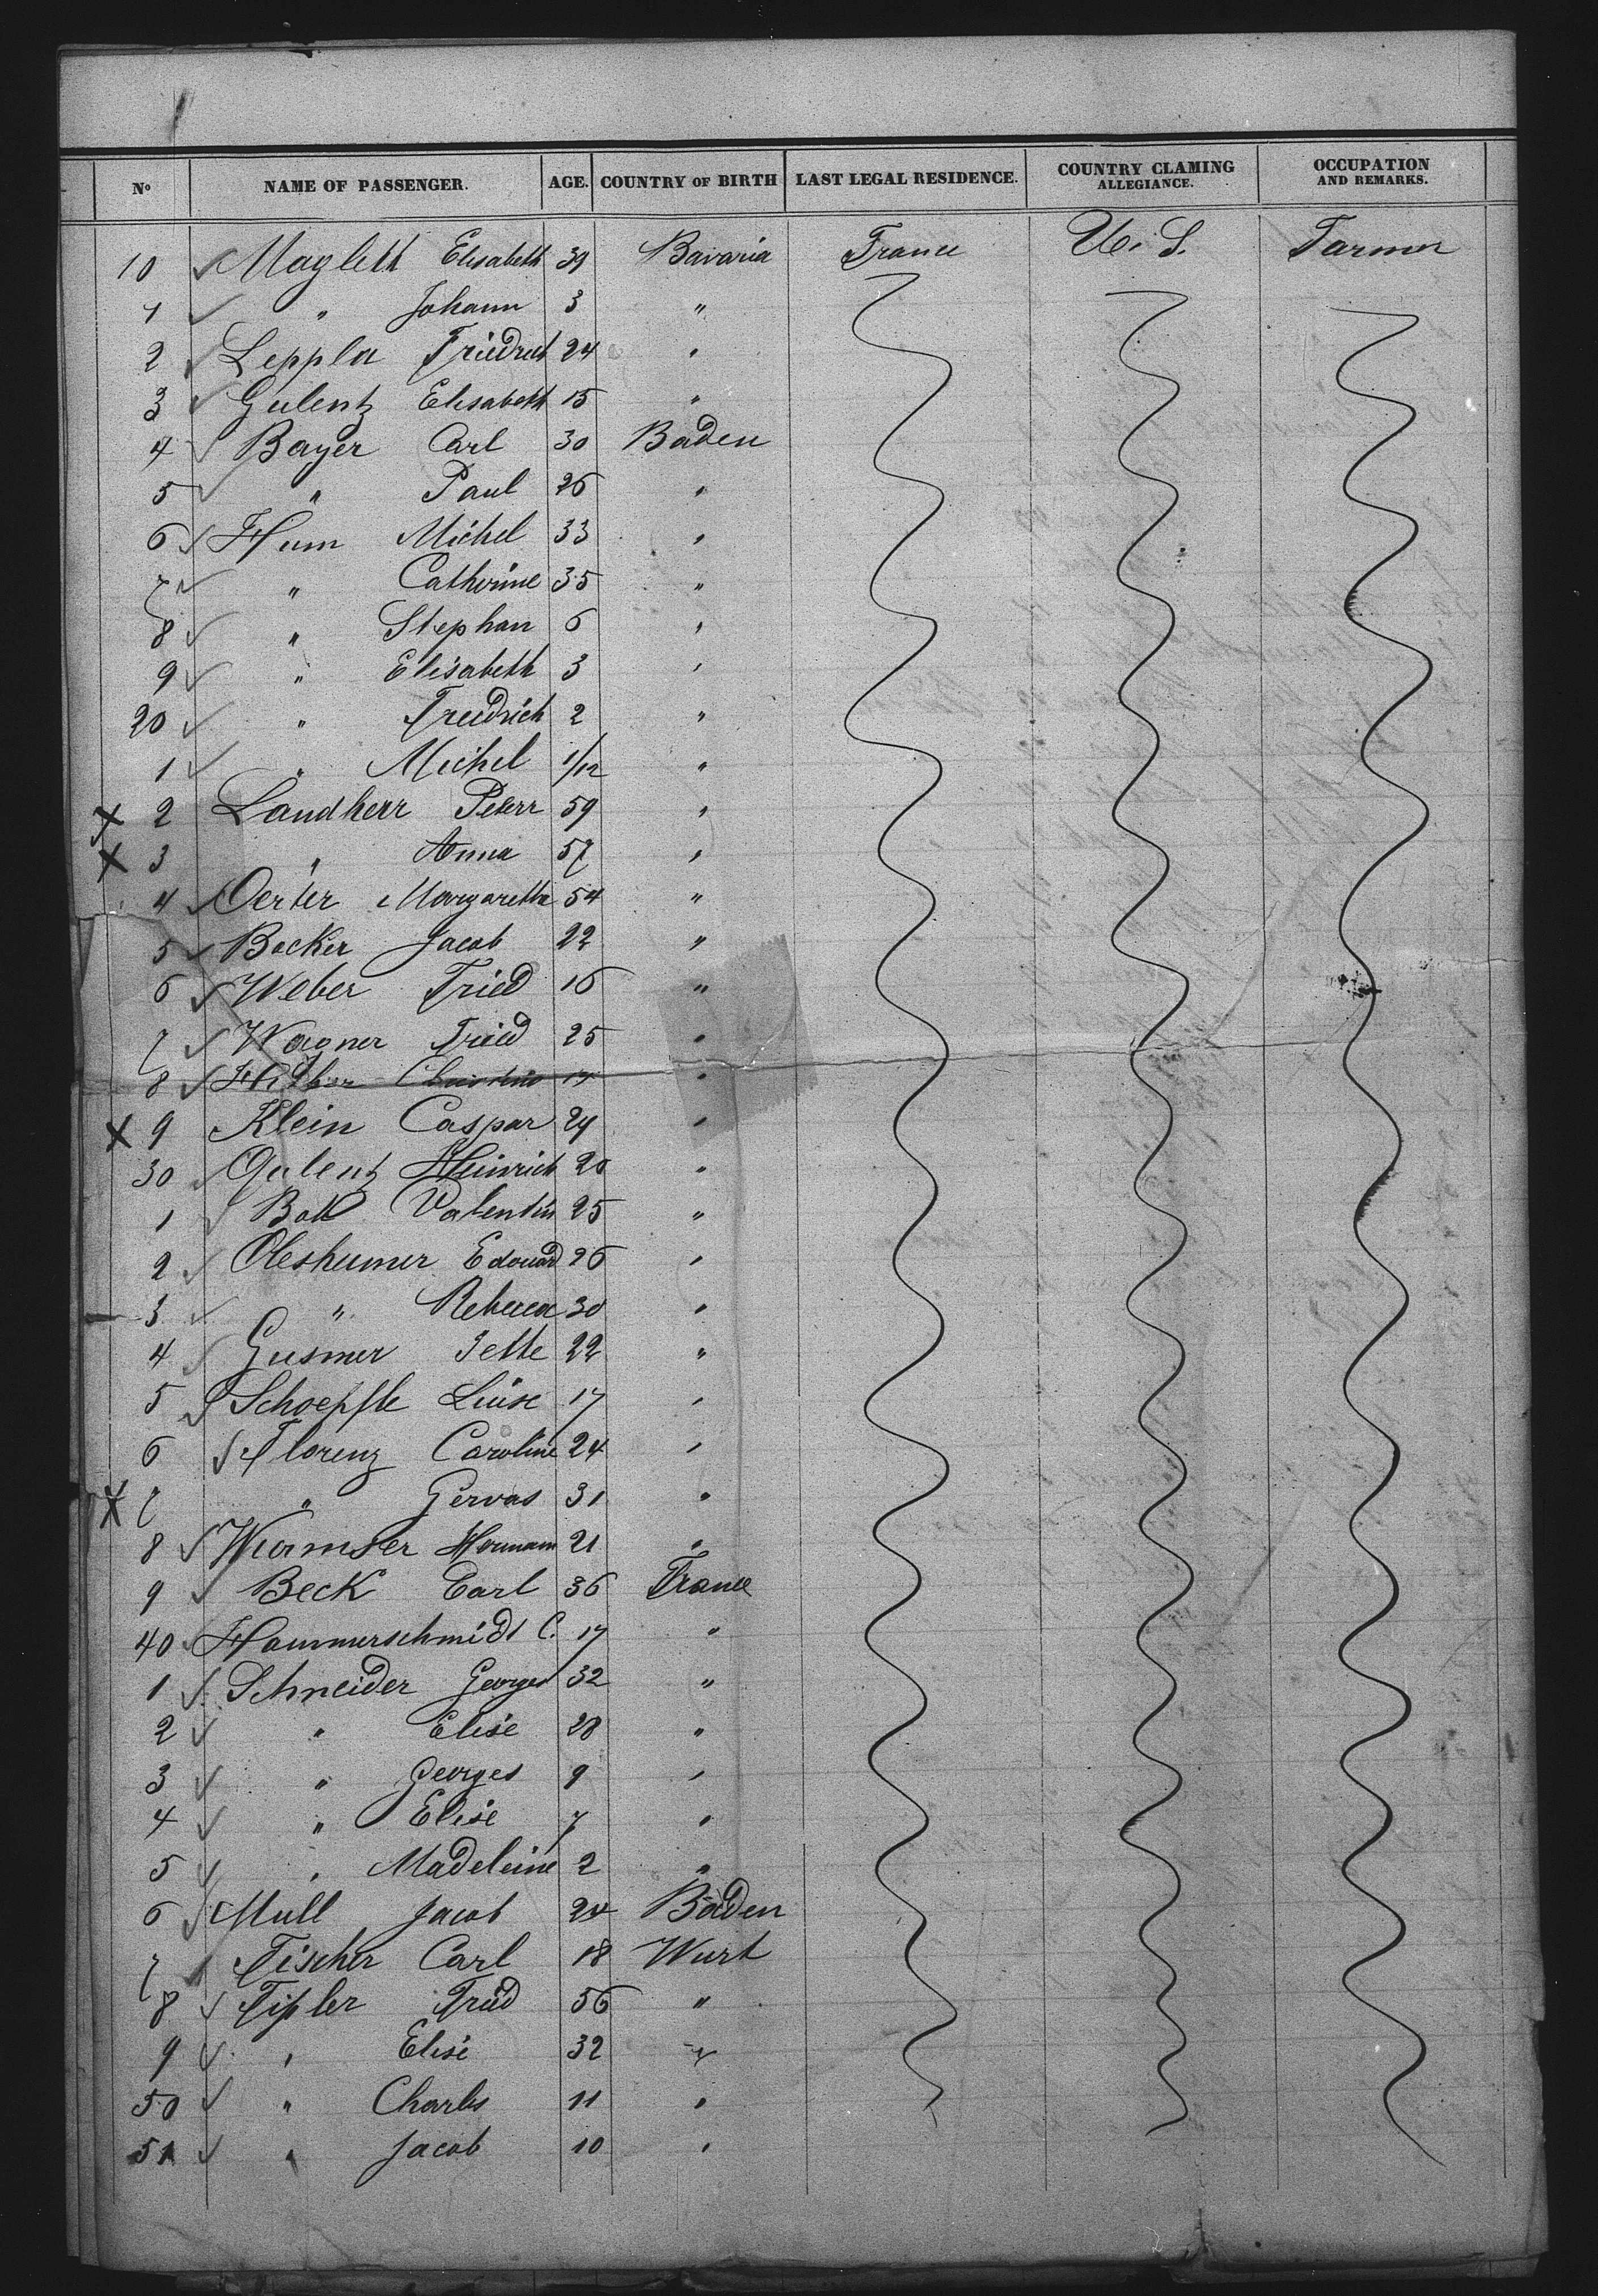 No NAME OF PASSENGER. AGE. COUNTRY OF BIRTH LAST LEGAL RESIDENCE. COUNTRY CLAMING ALLEGIANCE. OCCUPATION AND REMARKS.
10 ✓ Magleth Elisabeth 39 Bavaria France U. S. Farmer
1 ✓ " Johann 3 "
2 ✓ Leppla Friedrich 24 "
3 ✓ Gulentz Elisabeth 15 "
4 ✓ Bayer Carl 30 Baden
5 ✓ " Paul 26 "
6 ✓ Hum Michel 33 "
7 ✓ " Catherine 35 "
8 ✓ " Stephan 6 "
9 ✓ " Elisabeth 3 "
20 ✓ " Friedrich 2 "
1 ✓ " Michel 1/12 "
X 2 Landherr Peterr 59 "
X 3 " Anna 57 "
4 ✓ Oerter Margaretha 54 "
5 ✓ Backer Jacob 22 "
6 ✓ Weber Fried 16 "
7 ✓ Wagner Fried 25 "
8 ✓ "
X 9 Klein Caspar 29 "
30 ✓ Gulentz Heinrich 20 "
1 ✓ Valentin 25 "
2 ✓ Olesheimer Edouard 26 "
3 ✓ " Rebecca 30 "
4 ✓ Gusmer Jette 22 "
5 ✓ Schoepfle Luise 17 "
6 ✓ Florenz Caroline 24 "
X 7 " Gervas 31 "
8 ✓ Wurmser Hermann 21 "
9 ✓ Beck Carl 36 France
40 ✓ Hammerschmidt C. 17 "
1 ✓ Schneider Georges 32 "
2 ✓ " Elise 28 "
3 ✓ " Georges 9 "
4 ✓ " Elise 7 "
5 ✓ " Madeleine 2 "
6 ✓ Mull Jacob 24 Baden
7 ✓ Fischer Carl 18 Wurt
8 ✓ Tipler Fried 56 "
9 ✓ " Elise 32 "
50 ✓ " Charles 11 "
51 ✓ " Jacob 10 "